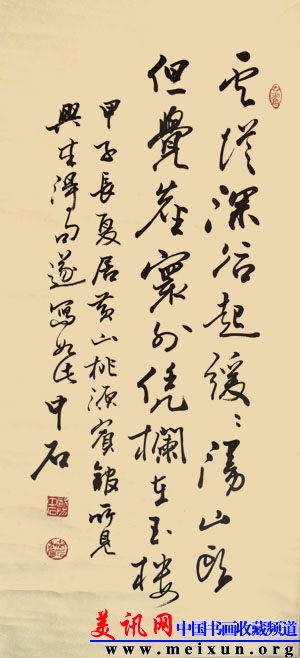 云深谷起緩〻蕩山頭
但覺塵寰外凭欄在玉樓
甲子長夏居黄山桃源賓館所見
興生得句遂寫如此 中石
美讯网 中国书画收藏频道
www.meixun.org